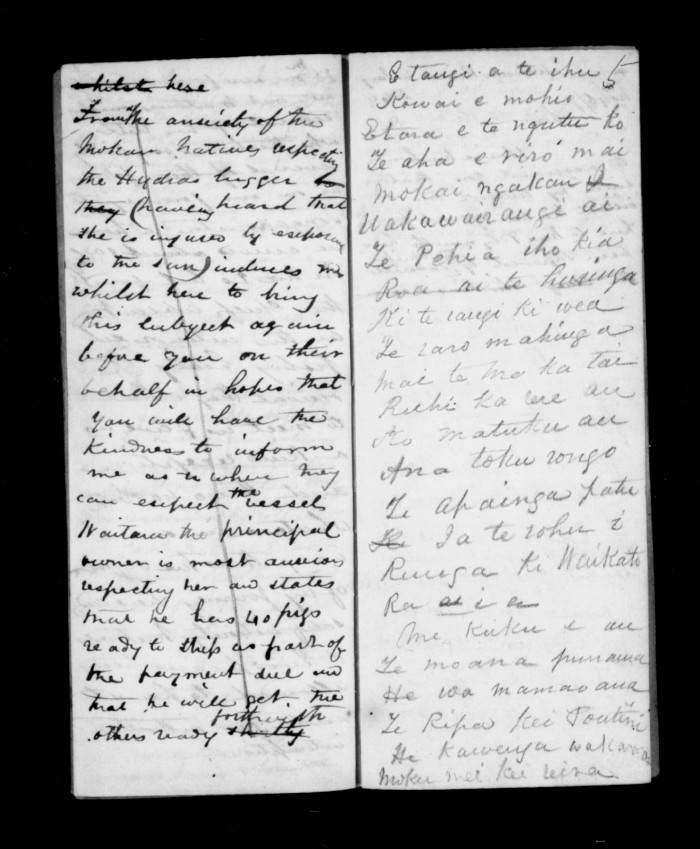 whilst here
From the anxiety of the
Mokau Natives respecting
the Hydras lugger to
they (having heard that
she is injured by exposure
to the sun) induces me
whilst here to bring
this subject again
before you on their
behalf in hopes that
you will have the
kindness to inform
me as to when they
can expect the vessel
Waitara the principal
owner is most anxious
respecting her and states
that he has 40 pigs
ready to ship as part of
the payment due and
that he will get the
others ready shortly forthwith
E tangi a te ihu 5
Kowai e mohio
Etara e te ngutu ko
Te aha e riro mai
mokai ngakau
Wakawairangi ai
Te Pehi a iho kia
Roa ai te huringa
Ki te rangi ki wea
Te raro mahinga
mai te mo ka tai
Ruhi ka we au
Ao matuku au
Ana toku rongo
Te apainga patu
Ia te rohu i
Runga ki Waikato
Ra
Me kuku e au
Te moana punawa
He wa mamao ana
Te Ripa kei Toutini
He kawenga
Moku mei kei reira